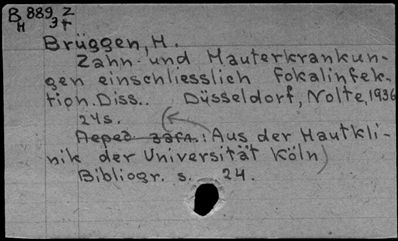 B 889 2
H 3т
Brüggen, H.
Zahn- und Hauterkrankun-
gen einschliesslich Fokalinfek-
tion. Diss.. Düsseldorf, Nolte, 1936
24s.
Перед загл.: Aus der Hautkli-
nik der Universität Köln)
Bibliogr. s. 24.